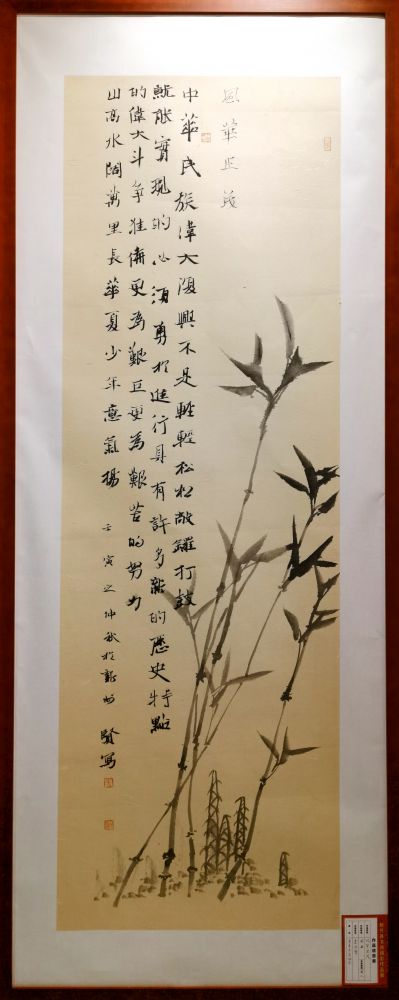 風華正茂
中華民族偉大復興不是輕輕松松敲鑼打鼓
就能實現的必須勇於進行具有許多新的歷史特點
的偉大斗爭准備更為艱巨更為艱苦的努力
山高水闊萬里長華夏少年意氣揚
壬寅之仲秋於龍州 賢寫